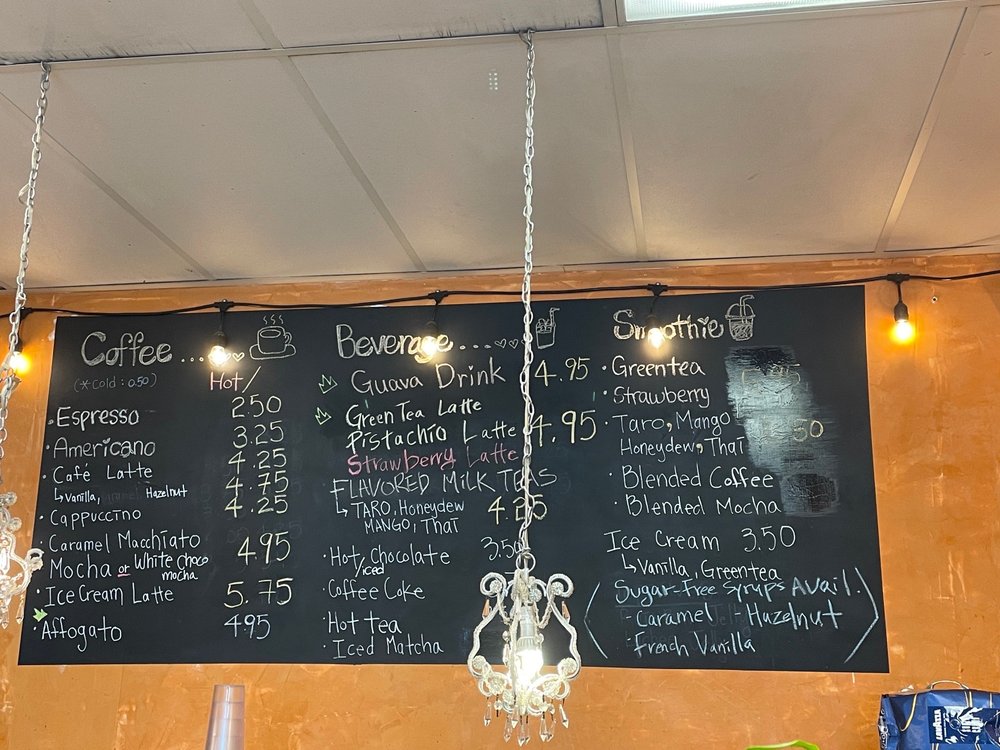 Coffee ....
(*Cold : 0.50)
Hot/
Espresso 2.50
Americano 3.25
Café Latte 4.25
↳ Vanilla, Hazelnut 4.75
Cappuccino 4.25
Caramel Macchiato
Mocha or White choco mocha 4.95
Ice Cream Latte 5.75
Affogato 4.95
Beverage ....
Guava Drink 4.95
Green Tea Latte
Pistachio Latte 4.95
Strawberry Latte
FLAVORED MILK TEAS
↳ TARO, Honeydew 4.25
MANGO, Thai
Hot/iced Chocolate 3.50
Coffee Coke
Hot tea
Iced Matcha
Smoothie
Greentea
Strawberry
Taro, Mango
Honeydew, Thai
Blended Coffee
Blended Mocha
Ice Cream 3.50
↳ Vanilla, Greentea
Sugar-Free Syrups Avail.
- Caramel - Hazelnut
- French Vanilla
LAVAZZA